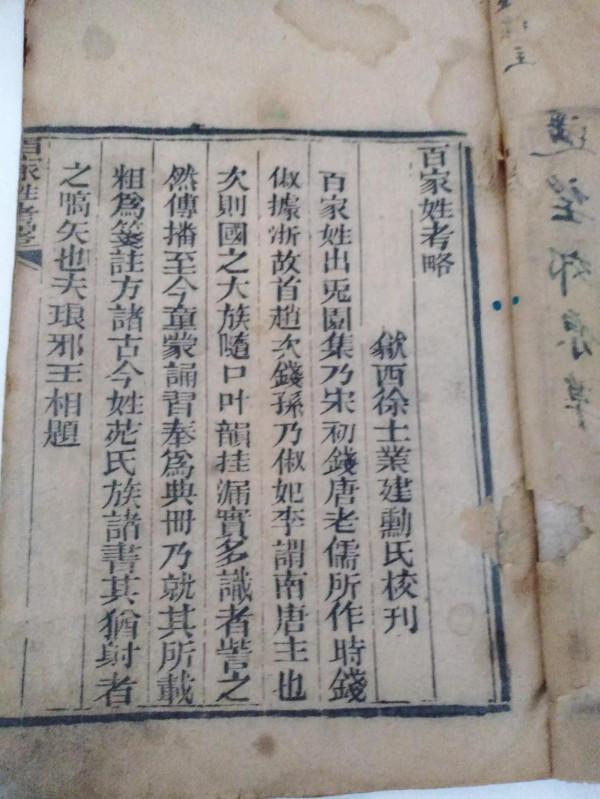 百家姓考略
歙西徐士業建勳氏校刊
百家姓出兎園集乃宋初錢唐老儒所作時錢
俶據浙故首趙次錢孫乃俶妃李謂南唐主也
次則國之大族隨口叶韻挂漏實多識者訾之
然傳播至今童蒙誦習奉為典冊乃就其所載
粗為箋註方諸古今姓苑氏族諸書其猶射者
之嚆矢也夫琅邪王相題
百家姓考畧